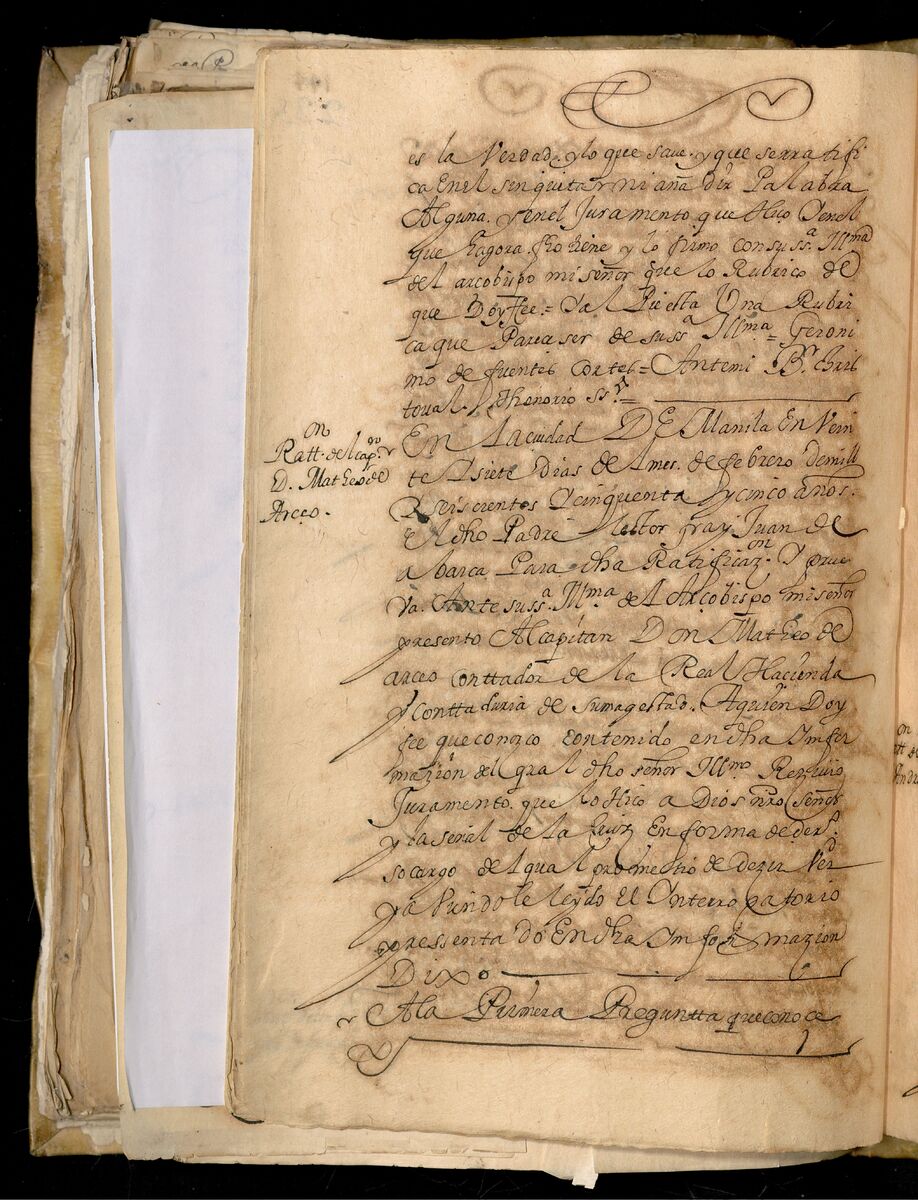 es la Verdad. y lo que save. y que serratifi
ca Enel sin quitar ni aña dir Palabra
Alguna. Senel Juramento que Hiço Yenel
que hagora fho tiene y lo firmo con suss.ª Illma
del arcobispo mi señor que lo Rubrico de
que Doyffee = Yal Pie esta Una Rubri
ca que Parece ser de suss.ª Illma = Geroni
mo de fuentes cortes = Antemi Br. Chris
toual. Thenorio ssº =
En La ciudad DE Manila En Vein
te Y siete Dias de Lmes. de febrero demill
Y seiscientos Y cinquenta Y cinco años.
El dho Padre lector fray Juan de
abarca Para dha Ratificaz.on Y prue
va. Ante suss.ª Illma del Arçobispo mi señor
presento Al capitan Don Matheo de
arceo conttador de la Real Hacienda
y Conttaduria de sumagestad. Aquien Doy
fee que conozco contenido en dha Ynfor
mazion del qual dho señor Illmo Reziuio
Juramento. que lo Hiço a Dios nro señor
y la señal de la cruz En forma de der.º
so cargo del qual prometio de dezir Ver.d
Ya viendole leydo el Ynterrogatorio
pressentado En dha Ynformazion
Dixo
A la Primera Preguntta que conoce
Ratt.on del cap.n
D. Matheo de
Arçeo.